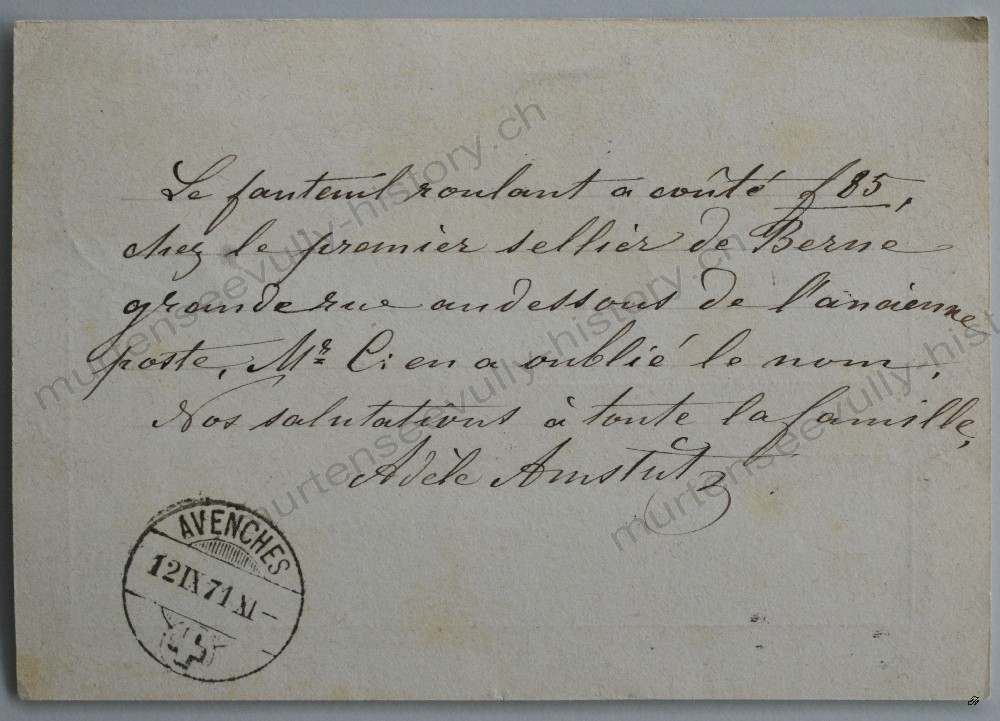 Le fauteuil roulant a coûté f 85,
chez le premier sellier de Berne
grande rue au dessous de l'ancienne
poste, Mr C: en a oublié le nom.
Nos salutations à toute la famille,
Adèle Amstutz
AVENCHES
12 IX 71 XI –
murtenseevully-history.ch
murtenseevully-history.ch
murtenseevully-history.ch